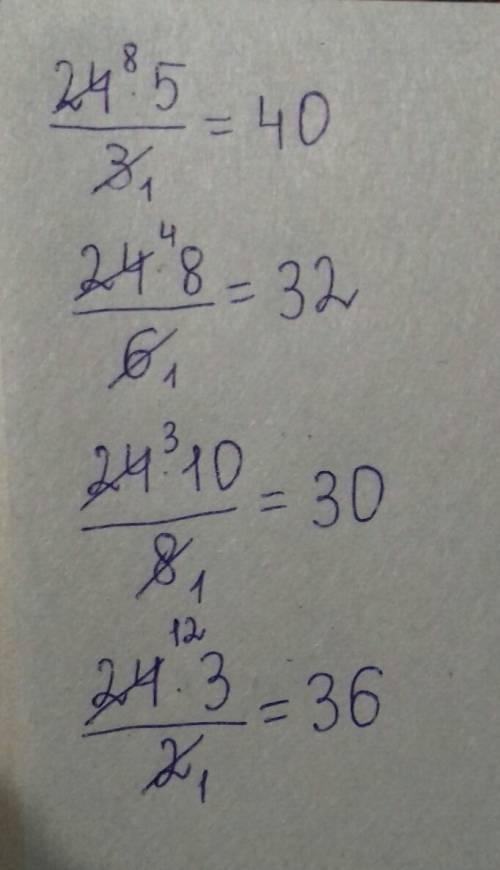 24⁸·5/3₁ = 40
24⁴·8/6₁ = 32
24³·10/8₁ = 30
24¹²·3/2₁ = 36